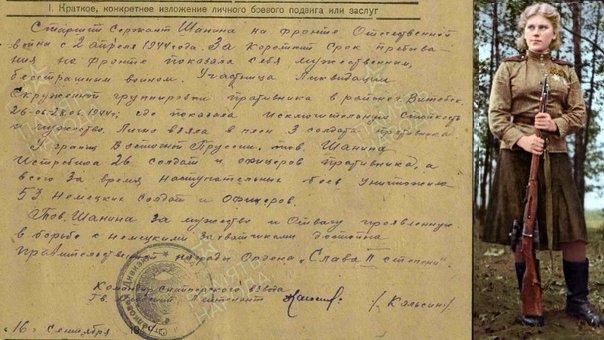 I. Краткое, конкретное изложение личного боевого подвига или заслуг
Старший Сержант Шанина на фронте Отечественной
войны с 2 апреля 1944 года. За короткий срок пребыва
ния на фронте показала себя мужественным,
бесстрашным воином. Участница Ликвидации
Окруженной группировки противника в районе Витебск
26-28.06.1944г; где показала исключительную стойкость
и мужество. Лично взяла в плен 3 солдата противника
У границ Восточной Пруссии, тов. Шанина
Истребила 26 солдат и офицеров противника, а
всего За время наступательных боев уничтожила
53 Немецких Солдат и Офицеров.
Тов. Шанина За мужество и Отвагу проявленную
в борьбе с немецкими захватчиками достойна
Правительственной награды Ордена „Слава II степени".
Командир Снайперского взвода
Гв. Лейтенант /Кальсин/
"16" Сентября